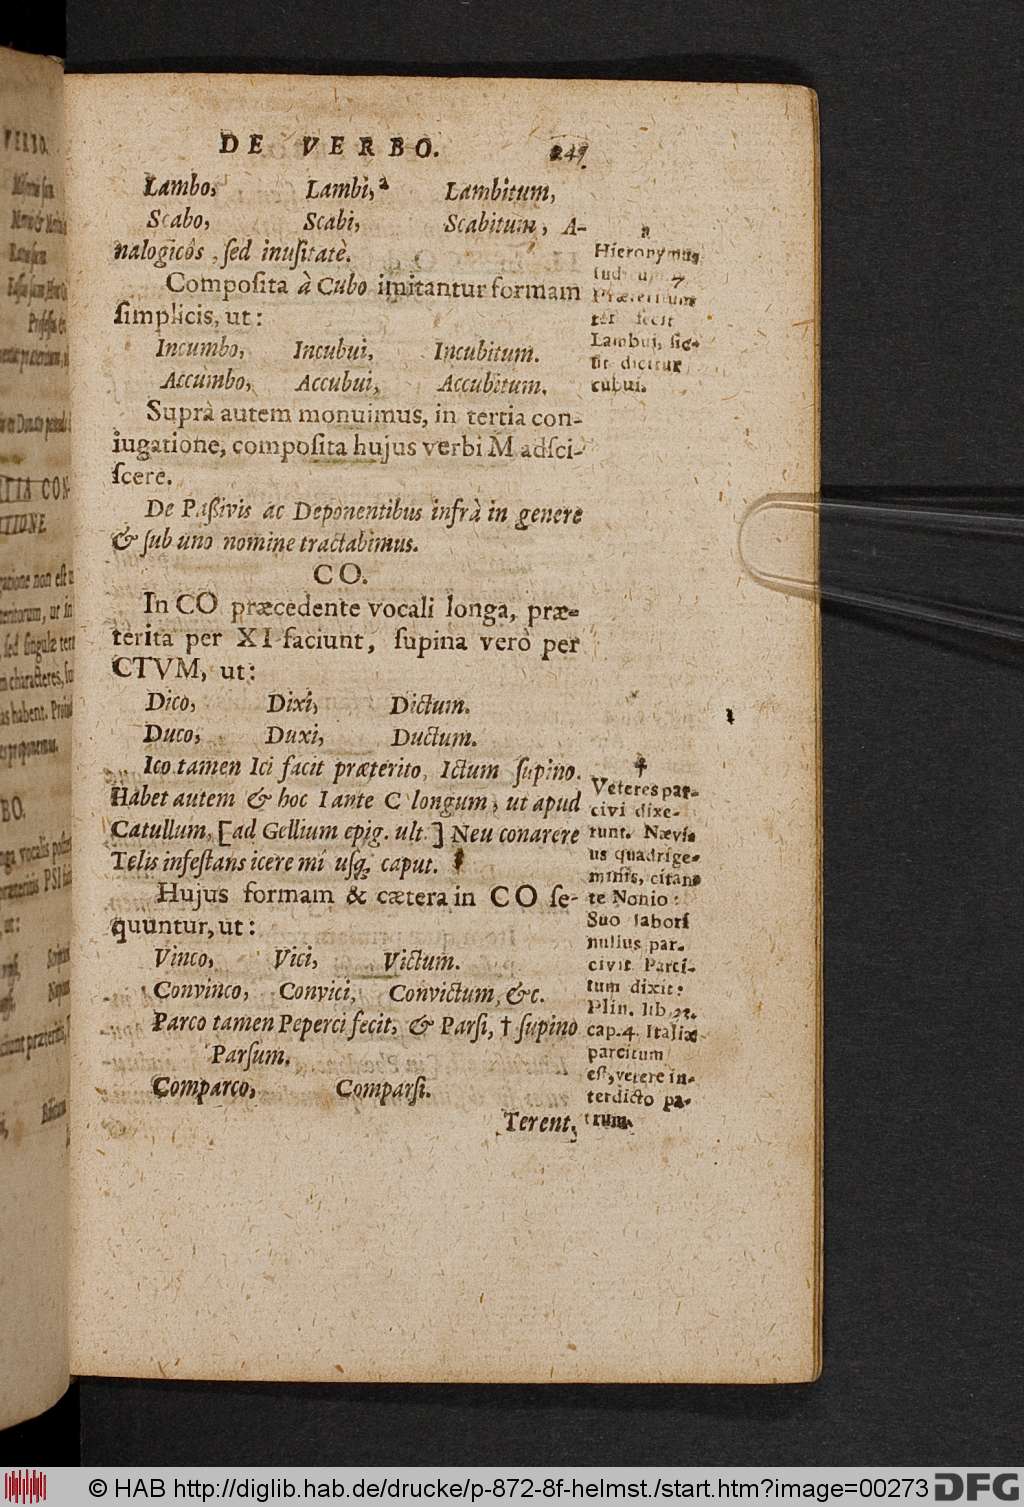 DE VERBO.
Lambo, Lambi,ª Lambitum,
Scabo, Scabi, Scabitum, A-
nalogicôs, sed inusitatè.
Composita à Cubo imitantur formam
simplicis, ut:
Incumbo, Incubui, Incubitum.
Accumbo, Accubui, Accubitum.
Suprà autem monuimus, in tertia con-
iugatione, composita hujus verbi M adsci-
scere.
De Paßivis ac Deponentibus infrà in genere
& sub uno nomine tractabimus.
CO.
In CO præcedente vocali longa, præ-
terita per XI faciunt, supina verò per
CTVM, ut:
Dico, Dixi, Dictum.
Duco, Duxi, Ductum.
Ico tamen Ici facit præterito, Ictum supino.
Habet autem & hoc I ante C longum, ut apud
Catullum, [ad Gellium epig. ult.] Neu conarere
Telis infestans icere mi usq; caput.
Hujus formam & cætera in CO se-
quuntur, ut:
Vinco, Vici, Victum.
Convinco, Convici, Convictum, &c.
Parco tamen Peperci fecit, & Parsi, † supino
Parsum.
Comparco, Comparsi.
Terent.
a
Hieronymus
Præteritum
ter fecit
Lambui, sic-
ut dicitur
cubui.
†
Veteres par-
civi dixe-
runt. Nævi-
us quadrige-
miniis, citan-
te Nonio:
Suo labori
nullus par-
civit Parci-
tum dixit:
Plin. lib.
cap. 4. Italiæ
parcitum
est, vetere in-
terdicto pa-
trum.
VERBO.
© HAB http://diglib.hab.de/drucke/p-872-8f-helmst./start.htm?image=00273
DFG